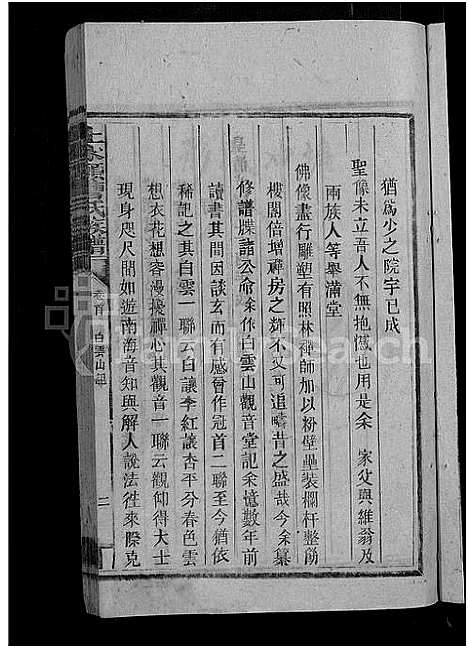 猶爲少之院宇已成
聖像未立吾人不無抱憾也用是余 家父與維翁及
兩族人等舉滿堂
佛像盡行雕塑有照林禪師加以粉壁壘裝欄杆整筋
樓閣倍增禪房之輝不又可追疇昔之盛哉今余纂
修譜牒諸公命余作白雲山觀音堂記余憶數年前
讀書其間因談玄而有感曾作冠首二聯至今猶依
稀記之其白雲一聯云白讓李紅讓杏平分春色雲
想衣花想容漫擾禪心其觀音一聯云觀仰得大士
現身咫尺間如遊南海音知與解人說法徃來際克
氏族譜
卷首
白雲山記
二